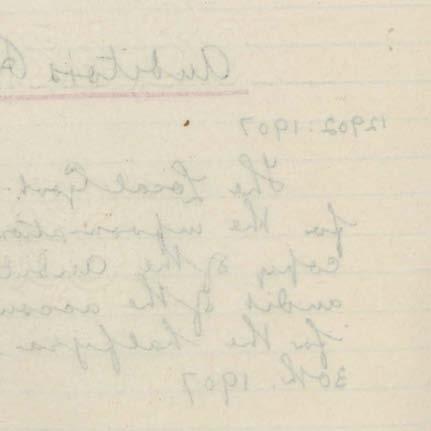 Auditors R
12902.1907
The Local Govt.
for the information
copy of the Audit
audit of the accou
for the half year
30th. 1907